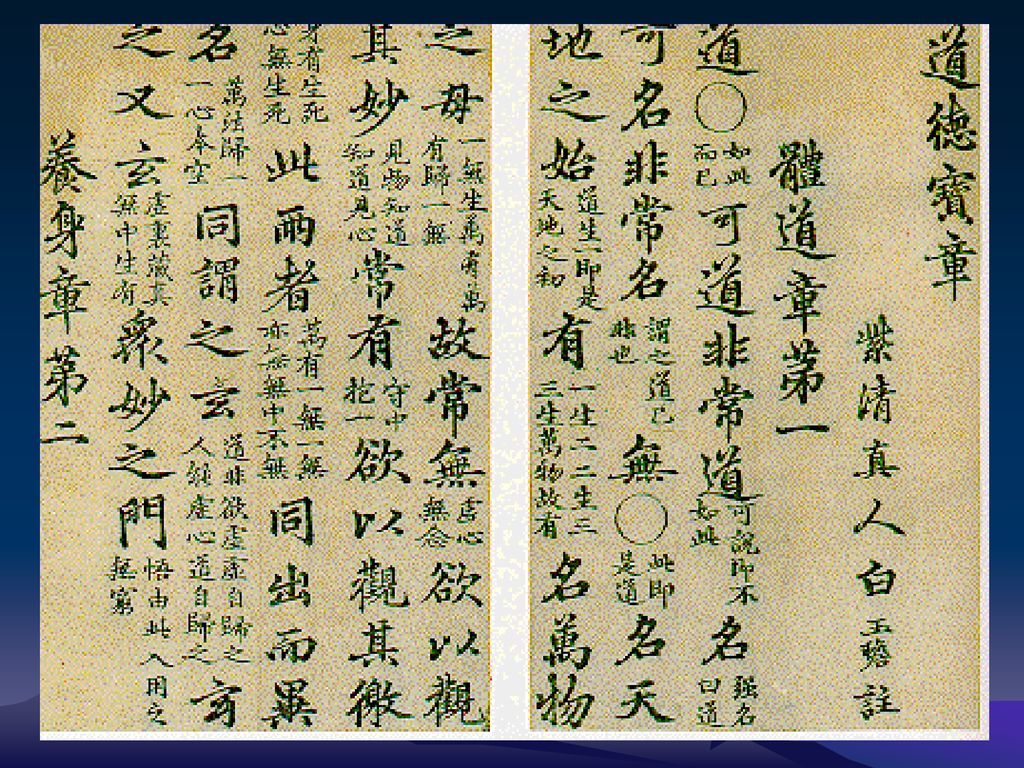 道德寶章
紫清真人白玉蟾註
體道章苐一
道〇如此而已可道非常道可説即不如此名强名曰道
可名非常名謂之道已非也無〇此即是道名天
地之始道生一即是天地之初有一生二二生三三生萬物故有名萬物
之母一無生萬有萬有歸一無故常無虛心無念欲以觀
其妙見物知道知道見心常有守中抱一欲以觀其徼
身有生死心無生死此兩者萬有一無一無亦無無中不無同出而異
名萬法歸一一心本空同謂之玄道非欲虛虛自歸之人能虛心道自歸之玄
之又玄虛裏藏真無中生有衆妙之門悟由此入用之無窮
養身章苐二